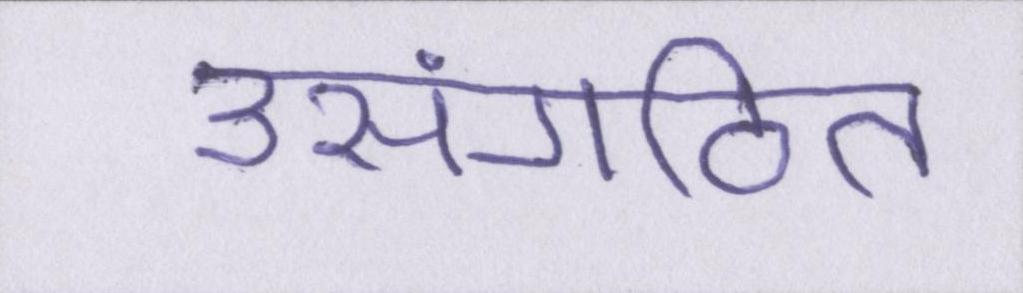 उसंगठित